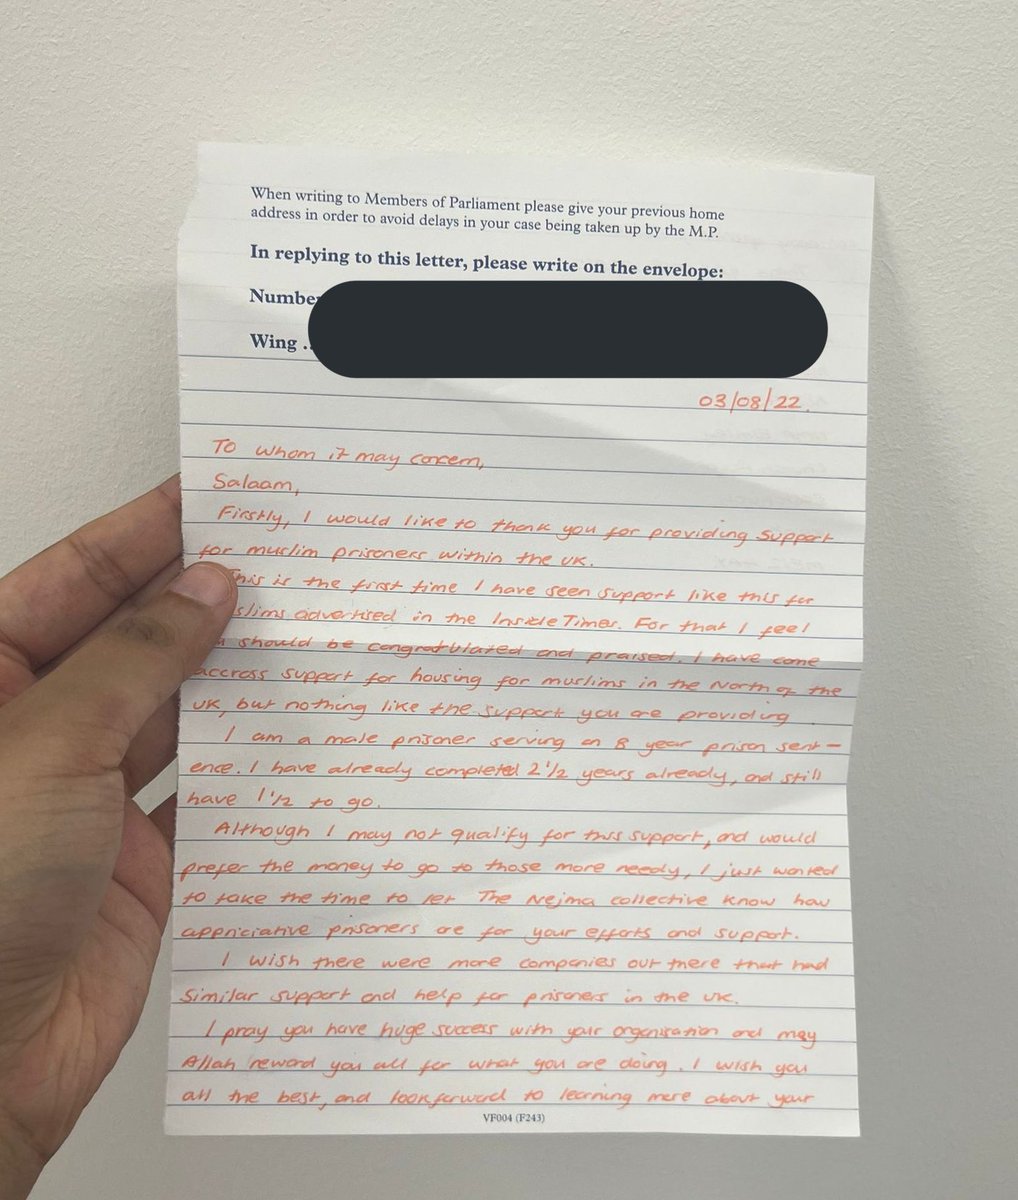 When writing to Members of Parliament please give your previous home
address in order to avoid delays in your case being taken up by the M.P.
In replying to this letter, please write on the envelope:
Number
Wing ..
03/08/22.
To whom it may concern,
Salaam,
Firstly, I would like to thank you for providing support
for muslim prisoners within the UK.
This is the first time I have seen support like this for
slims advertised in the Inside Times. For that I feel
should be congratulated and praised. I have come
accross support for housing for muslims in the North of the
UK, but nothing like the support you are providing
I am a male prisoner serving an 8 year prison sent-
ence. I have already completed 2 1/2 years already, and still
have 1 1/2 to go.
Although I may not qualify for this support, and would
prefer the money to go to those more needy, I just wanted
to take the time to let The Nejma collective know how
appriciative prisoners are for your efforts and support.
I wish there were more companies out there that had
similar support and help for prisoners in the UK.
I pray you have huge success with your organisation and may
Allah reward you all for what you are doing. I wish you
all the best, and look forward to learning more about your
VF004 (F243)